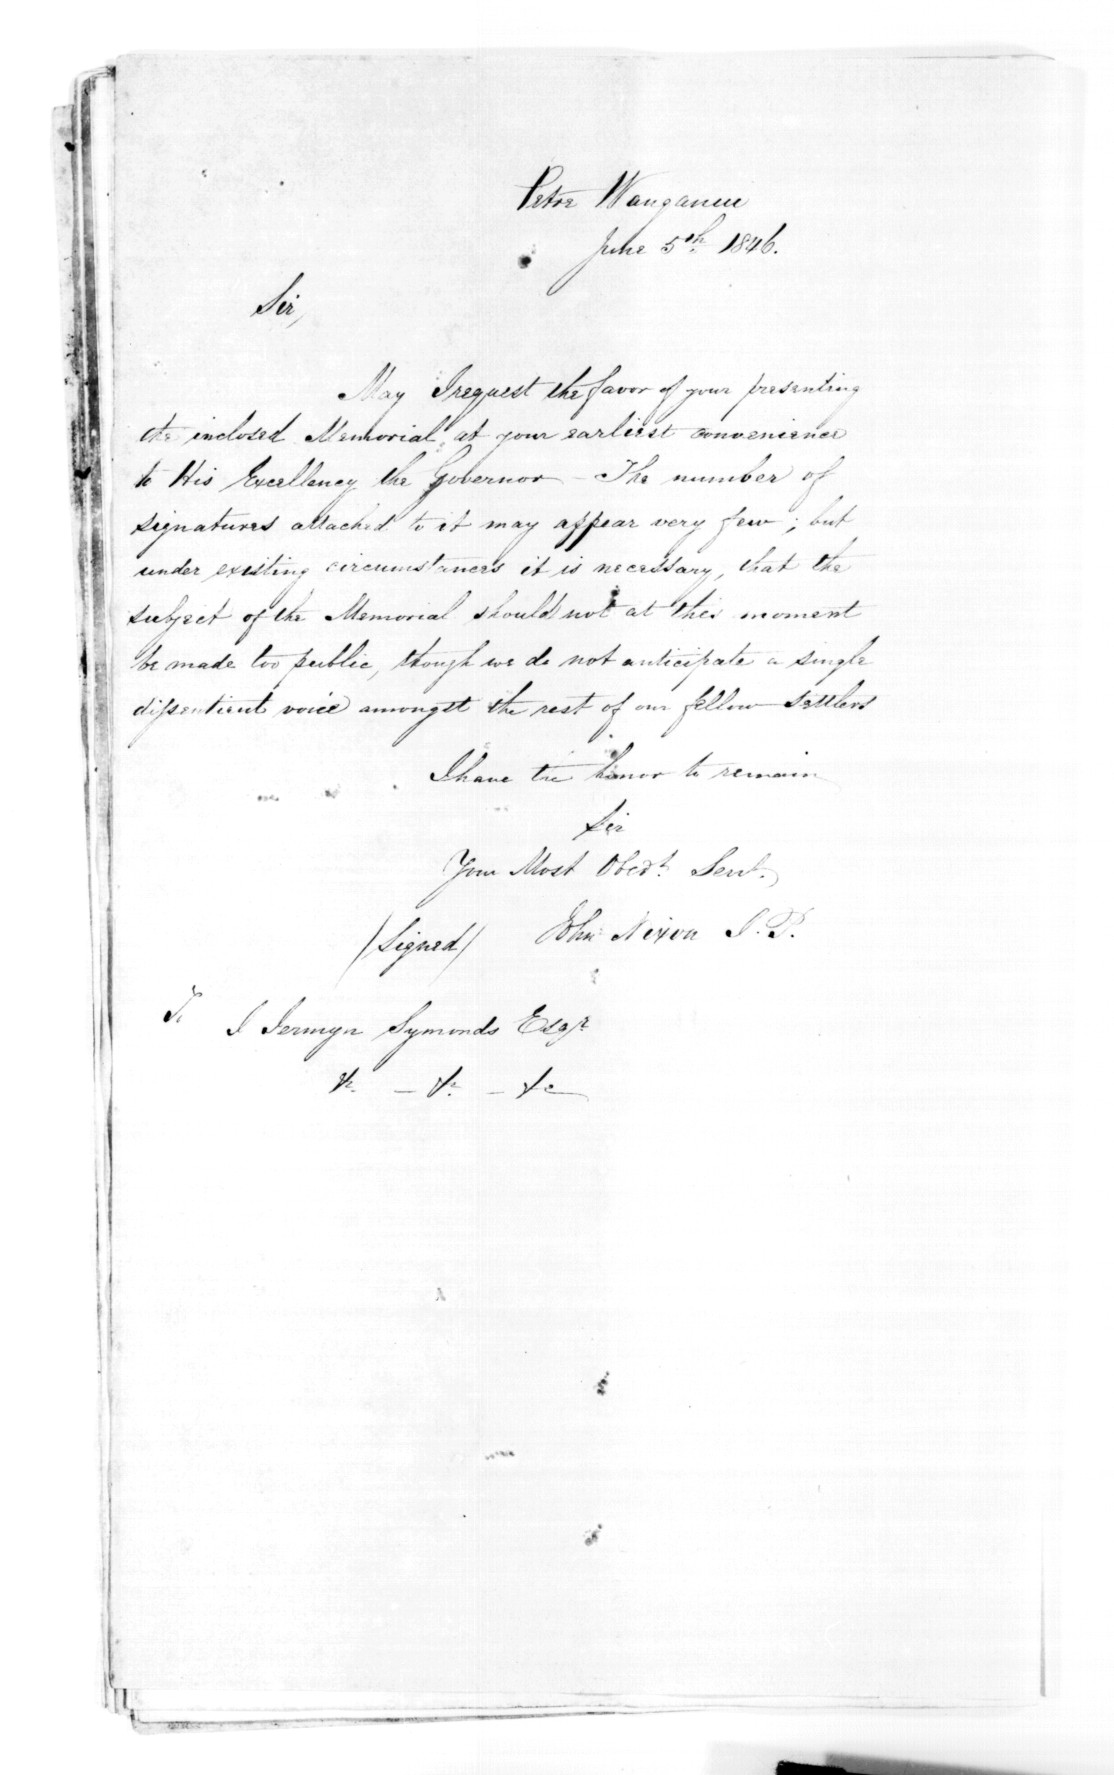 Petre Wanganui
June 5th 1846.
Sir,
May I request the favor of your presenting
the inclosed Memorial, at your earliest convenience
to His Excellency the Governor – The number of
signatures attached to it may appear very few; but
under existing circumstances it is necessary, that the
subject of the Memorial should not at this moment
be made too public, though we do not anticipate a single
dissentient voice amongst the rest of our fellow settlers
I have the honor to remain
Sir
Your Most Obedt. Servt.
(Signed) John Nixon J. P.
To J Jermyn Symonds Esqr
&c. – &c. – &c